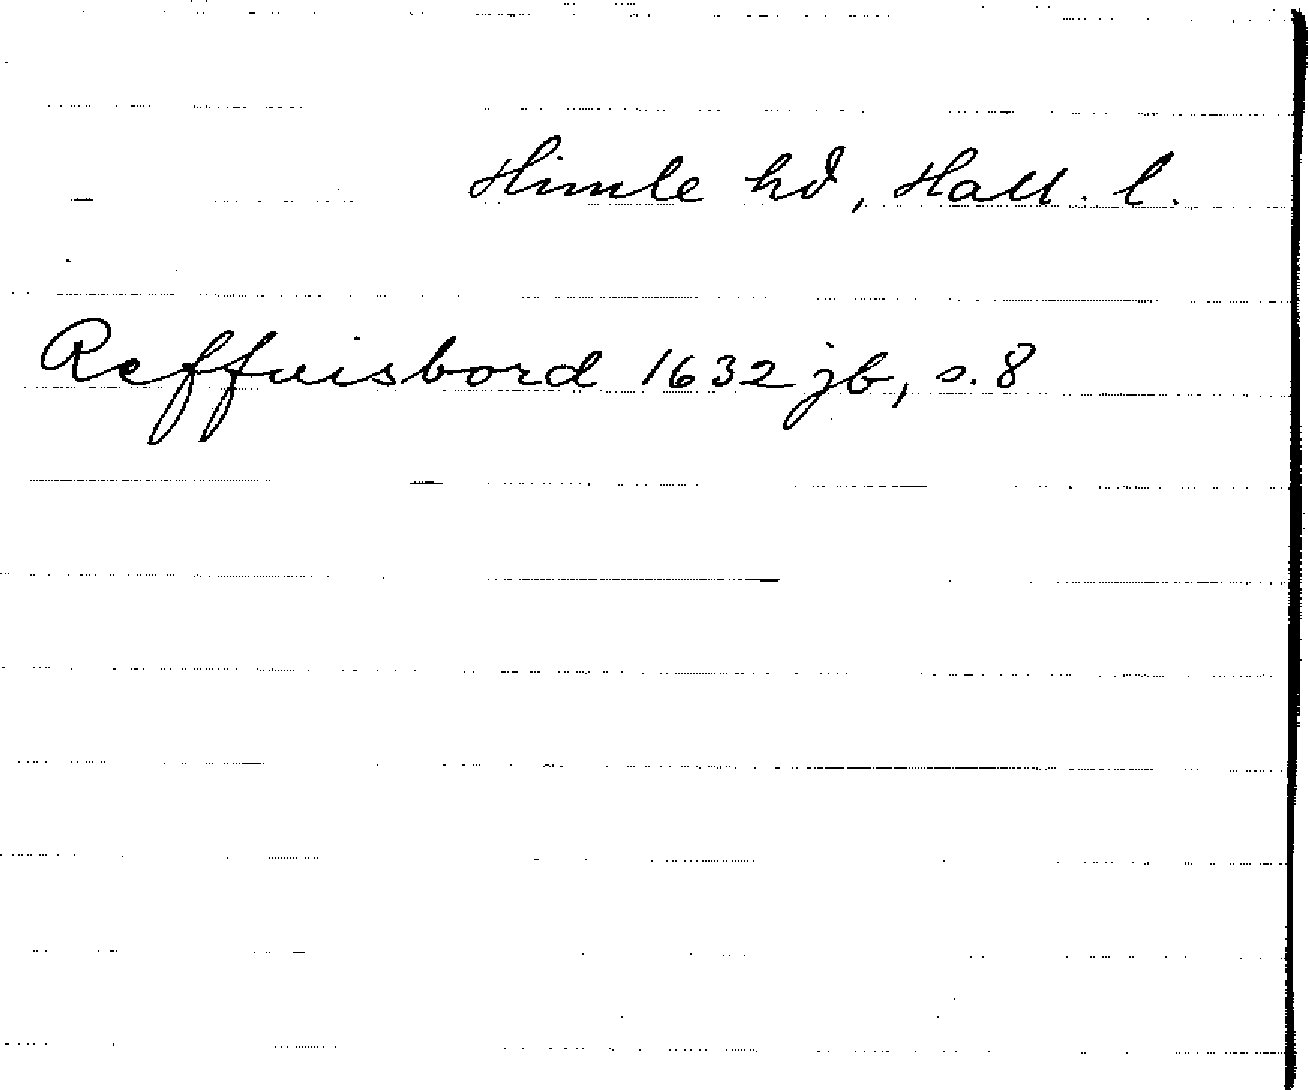 Himle hd, Hall. l.
Reffuisbord 1632 jb, s. 8